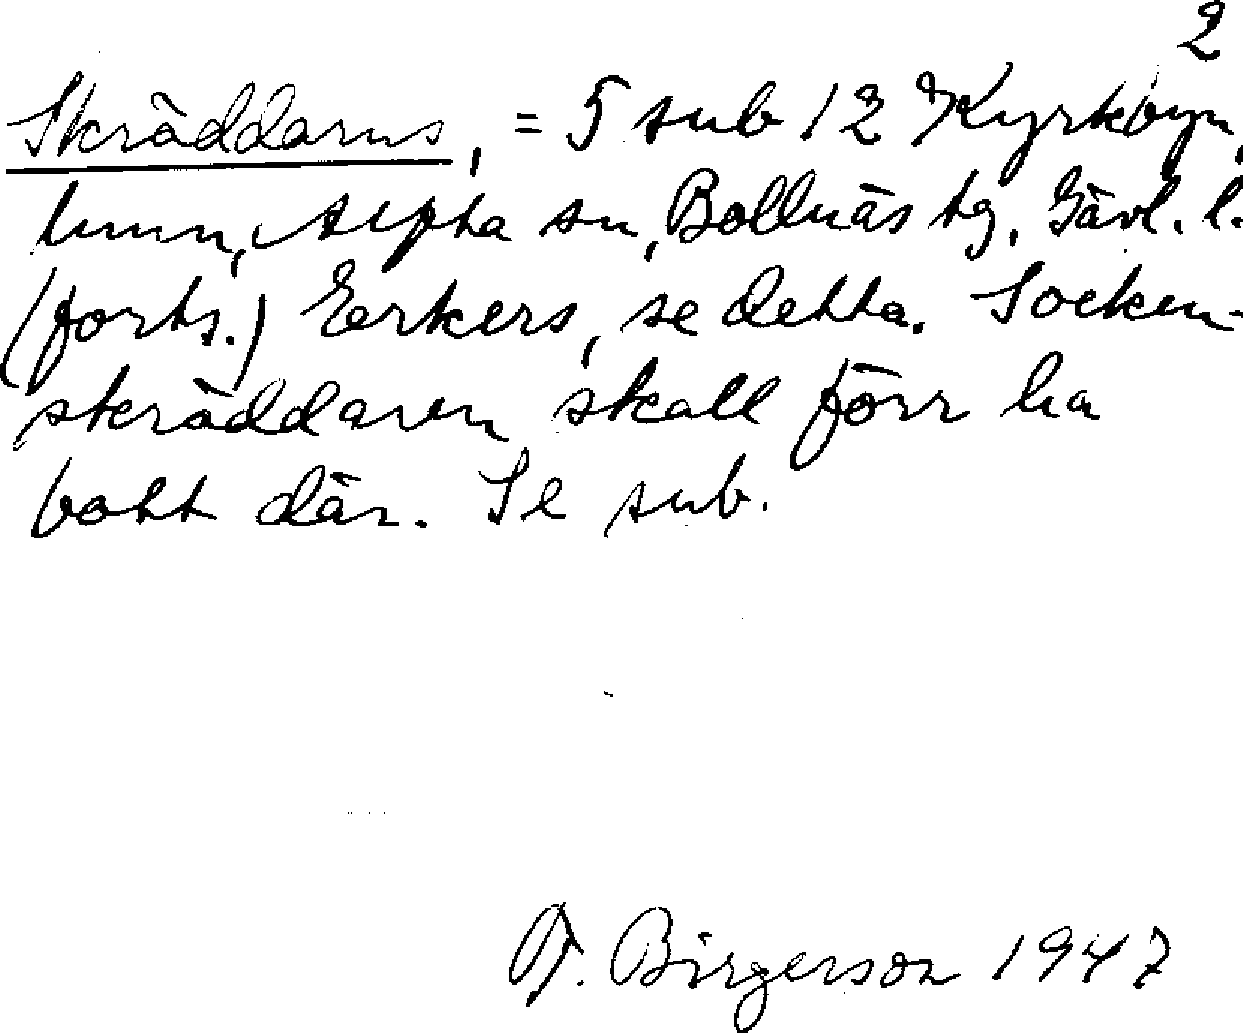 2
Skräddarns, = 5 sub 12 Kyrkbyn,
hmn, Alfta sn, Bollnäs tg, Gävl. l.
(forts.) Eerkers, se detta. Socken-
skräddaren skall förr ha
bott där. Se sub.
T. Birgerson 1947